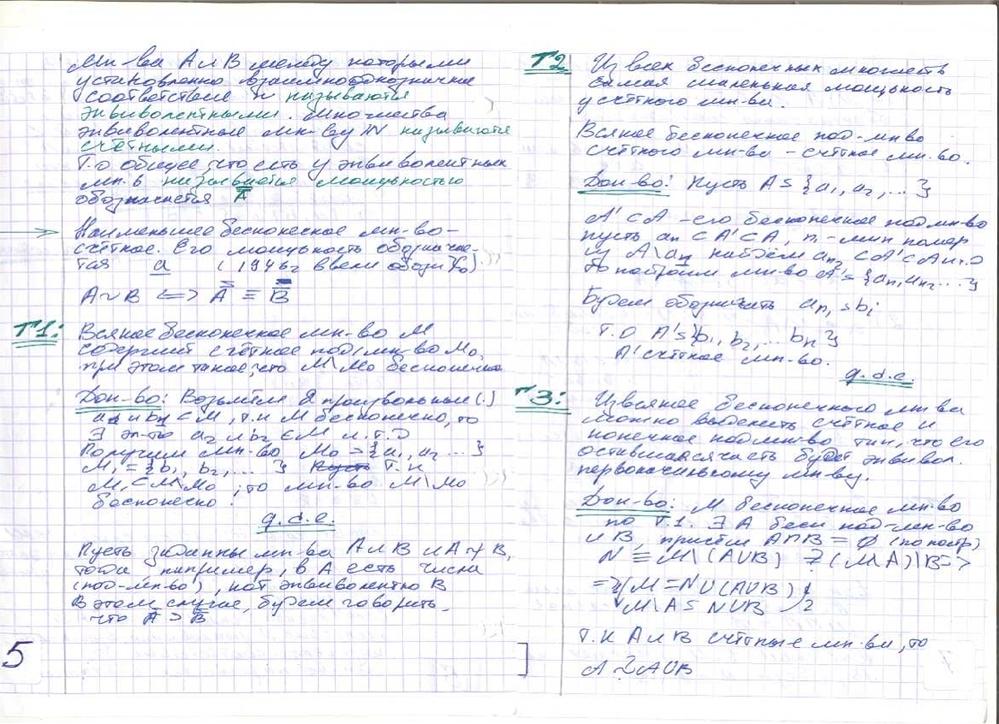 Мн-ва А и В между которыми
установленно взаимнооднозначное
соответствие называются
эквивалентными. Множества
эквивалентные мн-ву N называются
счётными.
Т.о общее, что есть у эквивалентных
мн-в называется мощностью
обозначается A̿
Наименьшее бесконечное мн-во -
счётное. Его мощность обознача-
тая a (1946г ввели обозн
A~B <=> A̿ ≡ B̿
Т1: Всякое бесконечное мн-во М
содержит счётное подмн-во М₀,
при этом такое, что М\М₀ бесконечно
Док-во: Возьмём 2 произвольные (.)
и b₁ ⊂ M, т.к М бесконечно, то
∃ эл-ты a₂ и b₂ ∈ M и т.д
Получим мн-во M₀ = {a₁, a₂ ...}
M₁ = {b₁, b₂, ...} Т.к
M₁ ⊂ M\M₀, то мн-во M\M₀
бесконечно.
q.d.e.
Пусть заданны мн-ва А и В и А ≁ В,
тогда например, в А есть числа
(под-мн-во), кот эквивалентно В
В этом случае, будем говорить,
что A̿ > B̿
5
Т2 Из всех бесконечных множеств
самая маленькая мощность
у счётного мн-ва.
Всякое бесконечное под-мн-во
счётного мн-ва - счётное мн-во.
Док-во: Пусть A = {a₁, a₂, ...}
A' ⊂ A - его бесконечное подмн-во
пусть aₙ ⊂ A' ⊂ A, n₁ - мин номер
из A\aₙ найдём aₙ₂ ⊂ A' ⊂ A и т.о
построим мн-во A' = {aₙ₁, aₙ₂ ...}
Будем обозначать aₙᵢ = bᵢ
Т.О A' = {b₁, b₂, ... bₙ}
A' счётное мн-во.
q.d.e.
Т3: Из всякого бесконечного мн-ва
можно выделить счётное и
конечное подмн-во так, что его
оставшаяся часть будет эквивал.
первоначальному мн-ву.
Док-во: М бесконечное мн-во
по Т.1. ∃ A беск под-мн-во
и В, причём A∩B = ∅ (по постр)
N ≡ M\(A∪B) (M\A)\B =>
=> {M = N∪(A∪B)
M\A = N∪B
Т.к А и В счётные мн-ва, то
A ~ A∪B